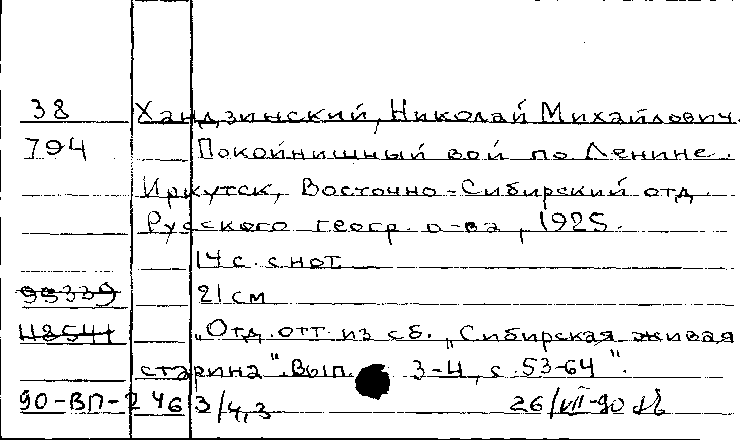 38 Хандзинский, Николай Михайлович.
794 Покойнишный вой по Ленине.
Иркутск, Восточно-Сибирский отд.
Русского геогр. о-ва, 1925.
14 с. с нот.
99339 21 см
118541 "Отд. отт. из сб. "Сибирская живая
старина". Вып. 3-4, с. 53-64".
90-ВП-246 3/4,3 26/VII-90